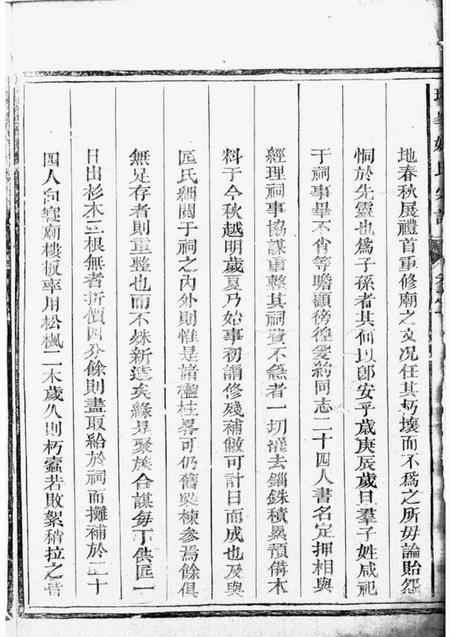 地春秋展禮首重修廟之文况任其朽壞而不為之所毋論貽怨
恫於先靈也為子孫者其何以卽安乎歲庚辰歲旦羣子姓咸祀
于祠事畢不肖等瞻顧徬徨爰約同志二十四人書名定押相與
經理祠事協謀重整其祠費不急者一切罷去錙銖積累預備木
料于今秋越明歲夏乃始事初謂修殘補敝可計日而成也及與
匠氏細閱于祠之內外則惟是諸楹柱畧可仍舊與棟參焉餘俱
無足存者則重整也而不殊新造矣緣是聚族合謀每丁供匠一
日出杉木三根無者折價四分餘則盡取給於祠而攤補於二十
四人向寢廟樓板率用松楓二木歲久則朽蠹若敗絮稍拉之皆